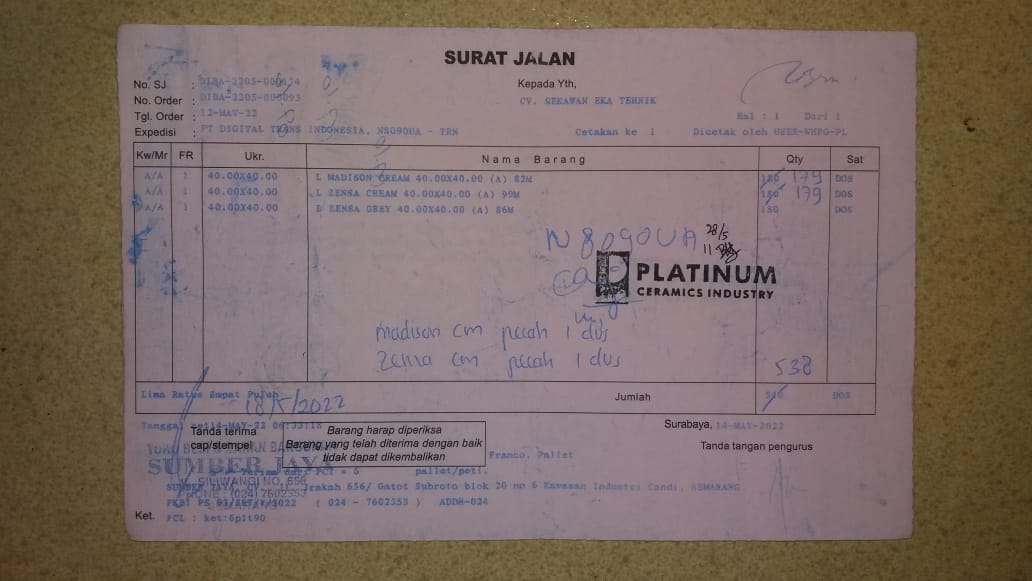 SURAT JALAN
No. SJ :
No. Order :
Tgl. Order : 12-MAY-22
Expedisi : PT DIGITAL TRANS INDONESIA, N8090UA - TRN
Kepada Yth,
CV. SEKAWAN EKA TEHNIK
Hal : 1 Dari 1
Cetakan ke 1 Dicetak oleh USER-WHPG-PL
Kw/Mr FR Ukr. Nama Barang Qty Sat
A/A 1 40.00X40.00 L MADISON CREAM 40.00X40.00 (A) 82M 180 179 DOS
A/A 1 40.00X40.00 L ZENSA CREAM 40.00X40.00 (A) 99M 180 179 DOS
A/A 1 40.00X40.00 ZENSA GREY 40.00X40.00 (A) 86M 180 DOS
N8090UA 28/5
11
PLATINUM
CERAMICS INDUSTRY
madison cm pecah 1 dus
Zensa cm pecah 1 dus
538
Lima Ratus Empat Puluh Jumlah 540 DOS
18/5/2022
Tanda terima
cap/stempel
Barang harap diperiksa
Barang yang telah diterima dengan baik
tidak dapat dikembalikan
Surabaya, 14-MAY-2022
Tanda tangan pengurus
Franco. Pallet
SUMBER JAYA
SILIWANGI NO. 656
PHONE : (024) 7602353
pallet/peti.
656/ Gatot Subroto blok 20 no 6 Kawasan Industri Candi, SEMARANG
( 024 - 7602353 ) ADDH-024
Ket. PCL : ket:6plt90